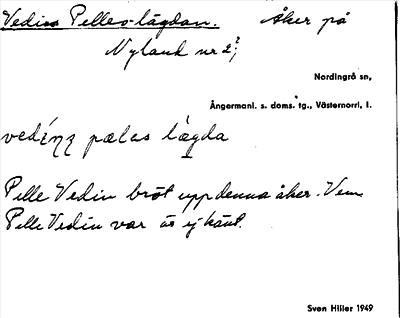 Vedins Pelles-lägdan. Åker på
Nyland nr 2;
Nordingrå sn,
Ångermanl. s. doms. tg., Västernorrl. l.
pælas lægda
Pelle Vedin bröt upp denna åker. Vem
Pelle Vedin var är ej känt.
Sven Hiller 1949